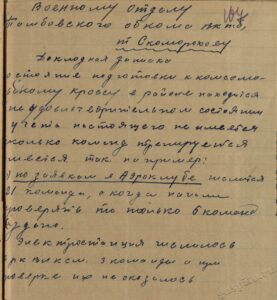 Военному Отделу 167
Тамбовского обкома ВКПб,
т Скоморохову
Докладная записка
остояние подготовки к комсомоль
скому кроссу в районе находится
не удовлетворительном состоянии
учета настоящего не имеется
сколько команд тренируется
имеется так на пример:
по заявкам в Аэроклубе числится
21 команда, а когда начали
проверять то только 6 команд
будьто.
Электростанция числилось
ркклксм. 3 команды а при
поверке их не оказалось